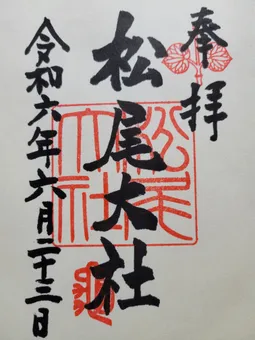 奉拝
松尾大社
令和六年六月二十三日
松尾
大社